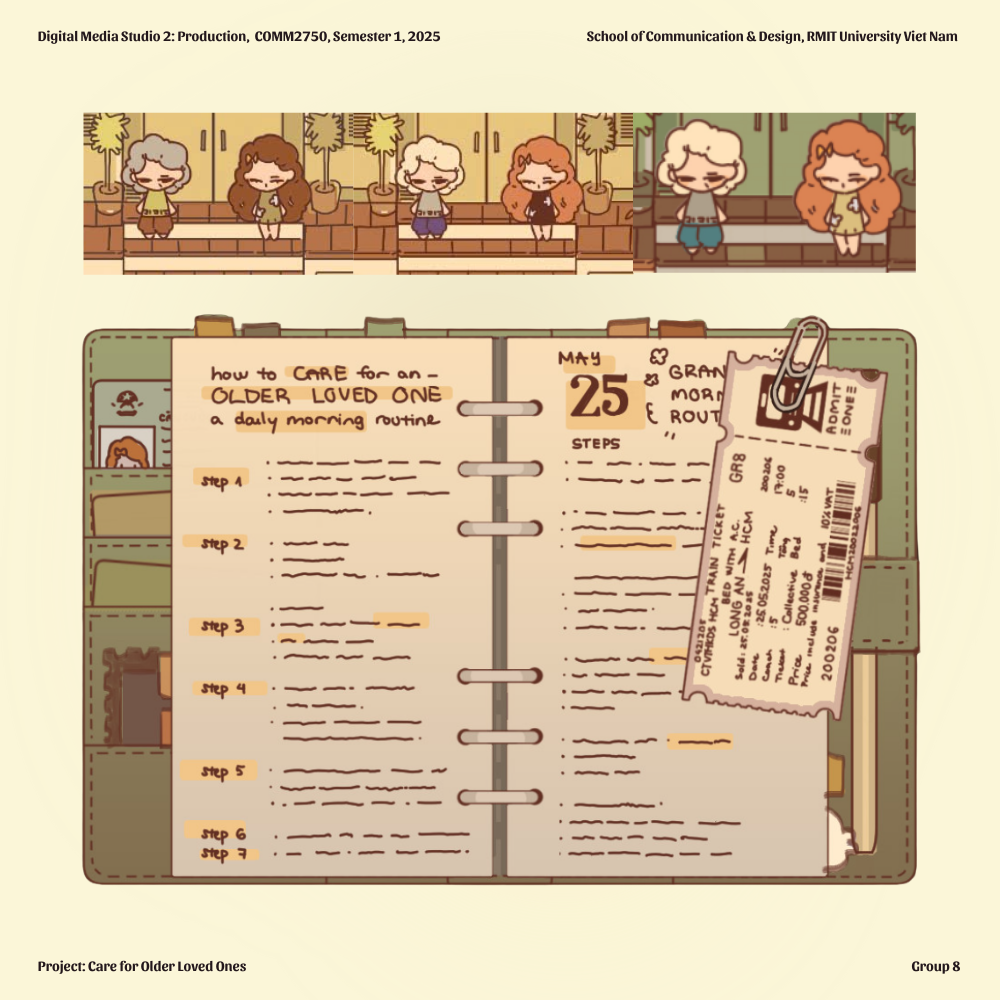 Digital Media Studio 2: Production, COMM2750, Semester 1, 2025
School of Communication & Design, RMIT University Viet Nam
how to CARE for an -
OLDER LOVED ONE
a daily morning routine
step 1
step 2
step 3
step 4
step 5
step 6
step 7
MAY
25
GRAN
MORN
ROUT
STEPS
ADMIT
ONE
CTVHKDS HCM TRAIN TICKET
GR8
BED WITH A.C.
LONG AN → HCM
Sold: 25.05.2025
200206
17:00
Date :25.05.2025 Time
Coach :5
5
Ticket : Collective Bed
:15
Price 500.000đ
Price include insurance and 10% VAT
200206
Project: Care for Older Loved Ones
Group 8